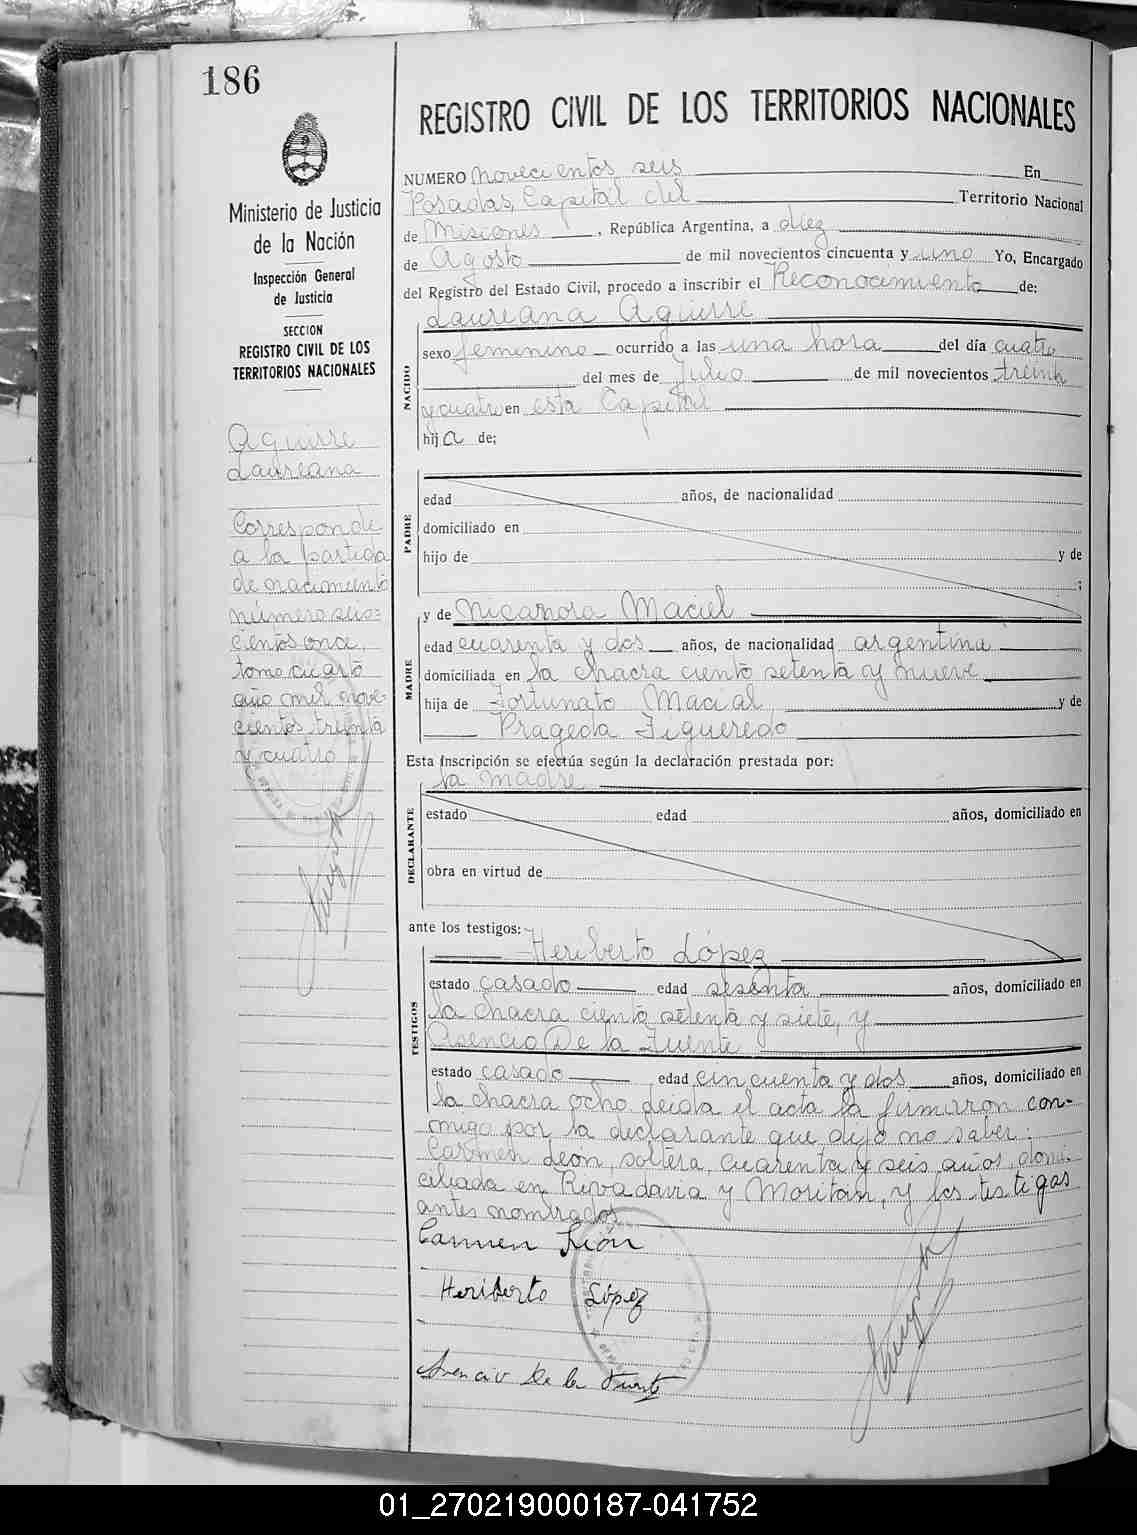 186
REGISTRO CIVIL DE LOS TERRITORIOS NACIONALES
Ministerio de Justicia
de la Nación
Inspección General
de Justicia
SECCION
REGISTRO CIVIL DE LOS
TERRITORIOS NACIONALES
Aguirre
Laureana
Corresponde
a la partida
de nacimiento
número seis=
cientos once,
tomo cuarto
año mil nove=
cientos treinta
y cuatro
NUMERO novecientos seis En
Posadas, Capital del Territorio Nacional
de Misiones, República Argentina, a diez
de Agosto de mil novecientos cincuenta y uno Yo, Encargado
del Registro del Estado Civil, procedo a inscribir el Reconocimiento de:
Laureana Aguirre
NACIDO
sexo femenino ocurrido a las una hora del día cuatro
del mes de Julio de mil novecientos treinta
y cuatro en esta Capital
hija de;
PADRE
edad años, de nacionalidad
domiciliado en
hijo de y de
;
y de Nicanora Maciel
MADRE
edad cuarenta y dos años, de nacionalidad argentina
domiciliada en la chacra ciento setenta y nueve
hija de Fortunato Macial, y de
Prageda Figueredo
Esta inscripción se efectúa según la declaración prestada por:
la madre
DECLARANTE
estado edad años, domiciliado en
obra en virtud de
ante los testigos:
Heriberto López
TESTIGOS
estado casado edad sesenta años, domiciliado en
la chacra ciento setenta y siete, y
Asencio De la Fuente
estado casado edad cincuenta y dos años, domiciliado en
la chacra ocho leida el acta la firmaron con-
migo por la declarante que dijo no saber:
Carmen León, soltera, cuarenta y seis años, domi-
ciliada en Rivadavia y Moritan, y los testigos
antes nombrados
Carmen León
Heriberto López
Asencio De la Fuente
01_270219000187-041752